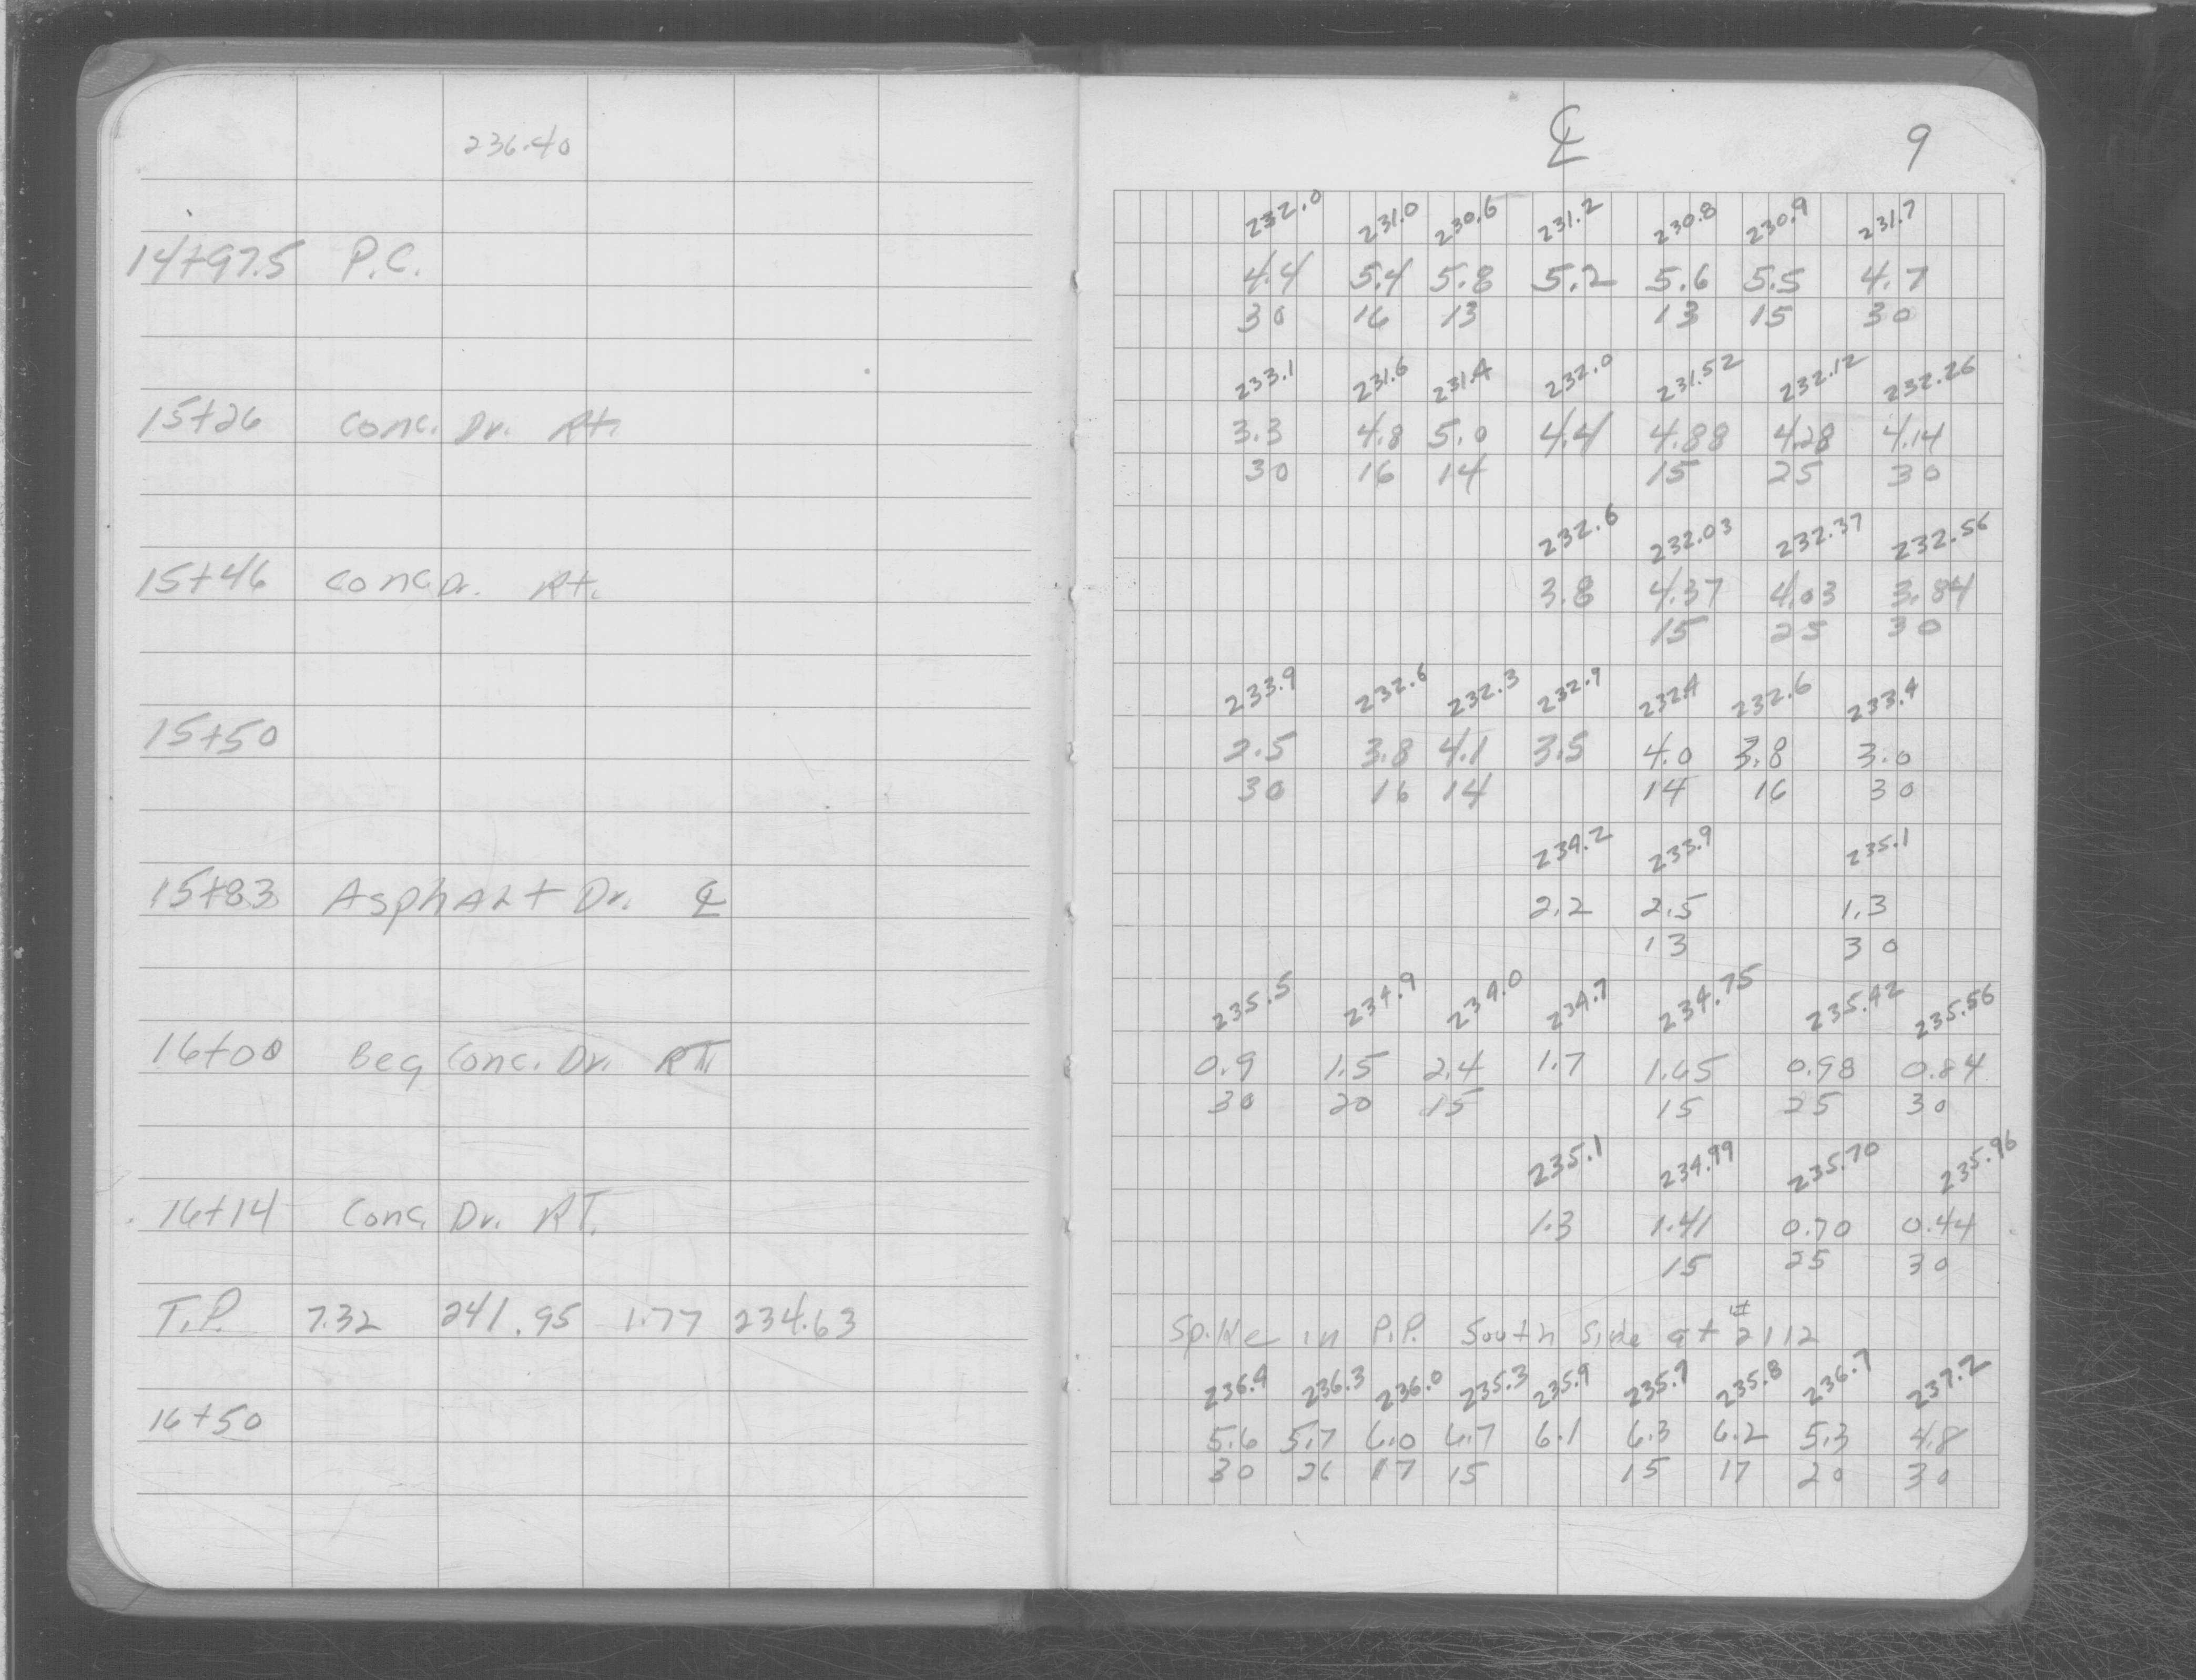 236.40
14+97.5 P.C.
15+26 Conc. Dr. Rt.
15+46 Conc Dr. Rt.
15+50
15+83 Asphalt Dr. ℄
16+00 Beg Conc. Dr. RT.
16+14 Conc. Dr. RT.
T.P. 7.32 241.95 1.77 234.63
16+50
℄ 9
232.0 231.0 230.6 231.2 230.8 230.9 231.7
4.4 5.4 5.8 5.2 5.6 5.5 4.7
30 16 13 13 15 30
233.1 231.6 231.4 232.0 231.52 232.12 232.26
3.3 4.8 5.0 4.4 4.88 4.28 4.14
30 16 14 15 25 30
232.6 232.03 232.37 232.56
3.8 4.37 4.03 3.84
15 25 30
233.9 232.6 232.3 232.9 232.4 232.6 233.4
2.5 3.8 4.1 3.5 4.0 3.8 3.0
30 16 14 14 16 30
234.2 233.9 235.1
2.2 2.5 1.3
13 30
235.5 234.9 234.0 234.7 234.75 235.42 235.56
0.9 1.5 2.4 1.7 1.65 0.98 0.84
30 20 15 15 25 30
235.1 234.99 235.70 235.96
1.3 1.41 0.70 0.44
15 25 30
Spike in P.P. South Side at #2112
236.4 236.3 236.0 235.3 235.9 235.7 235.8 236.7 237.2
5.6 5.7 6.0 6.7 6.1 6.3 6.2 5.3 4.8
30 26 17 15 15 17 20 30